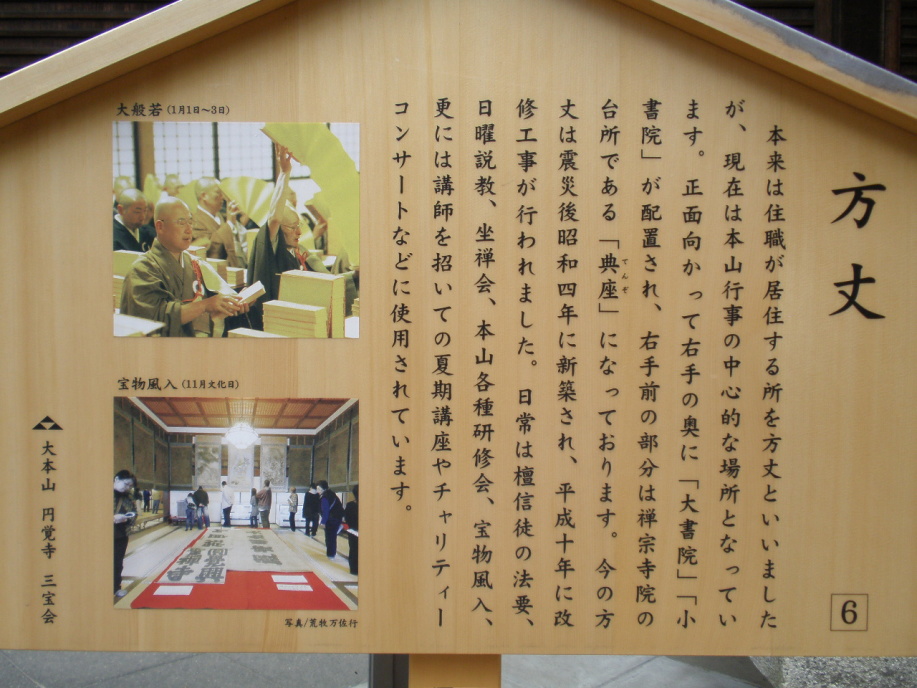 方丈
本来は住職が居住する所を方丈といいました
が、現在は本山行事の中心的な場所となってい
ます。正面向かって右手の奥に「大書院」「小
書院」が配置され、右手前の部分は禅宗寺院の
台所である「典座」になっております。今の方
てんぞ
丈は震災後昭和四年に新築され、平成十年に改
修工事が行われました。日常は檀信徒の法要、
日曜説教、坐禅会、本山各種研修会、宝物風入、
更には講師を招いての夏期講座やチャリティー
コンサートなどに使用されています。
6
大般若(1月1日〜3日)
宝物風入(11月文化日)
写真/荒牧万佐行
大本山 円覚寺 三宝会